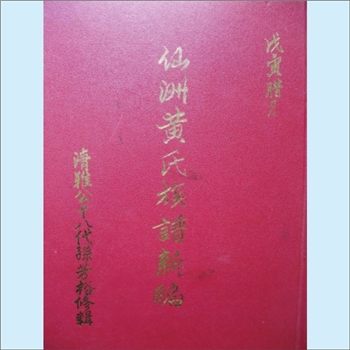 戊寅腊月
仙洲黄氏族譜新編
清雅公十八代孫芳裕修輯